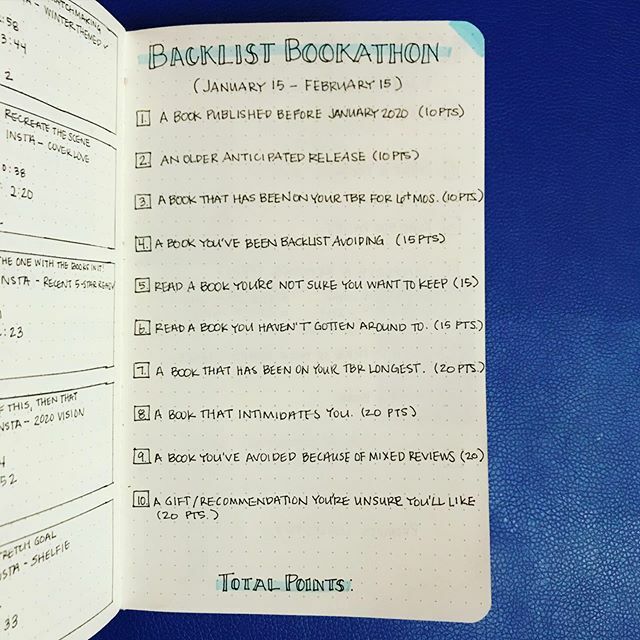 TCHMAKING
- WINTER THEMED ✓
:58
3:44
2
RECREATE THE SCENE
INSTA - COVER LOVE
0:38
2:20
THE ONE WITH THE BOOKS IN IT!
INSTA - RECENT 5-STAR READ
:23
F THIS, THEN THAT
NSTA - 2020 VISION
4
52
TRETCH GOAL
NSTA - SHELFIE
33
BACKLIST BOOKATHON
(JANUARY 15 - FEBRUARY 15)
1. A BOOK PUBLISHED BEFORE JANUARY 2020 (10 PTS)
2. AN OLDER ANTICIPATED RELEASE (10 PTS)
3. A BOOK THAT HAS BEEN ON YOUR TBR FOR 6+ MOS. (10 PTS.)
4. A BOOK YOU'VE BEEN BACKLIST AVOIDING (15 PTS)
5. READ A BOOK YOU'RE NOT SURE YOU WANT TO KEEP (15)
6. READ A BOOK YOU HAVEN'T GOTTEN AROUND TO. (15 PTS.)
7. A BOOK THAT HAS BEEN ON YOUR TBR LONGEST. (20 PTS.)
8. A BOOK THAT INTIMIDATES YOU. (20 PTS)
9. A BOOK YOU'VE AVOIDED BECAUSE OF MIXED REVIEWS (20)
10. A GIFT/RECOMMENDATION YOU'RE UNSURE YOU'LL LIKE
(20 PTS.)
TOTAL POINTS: